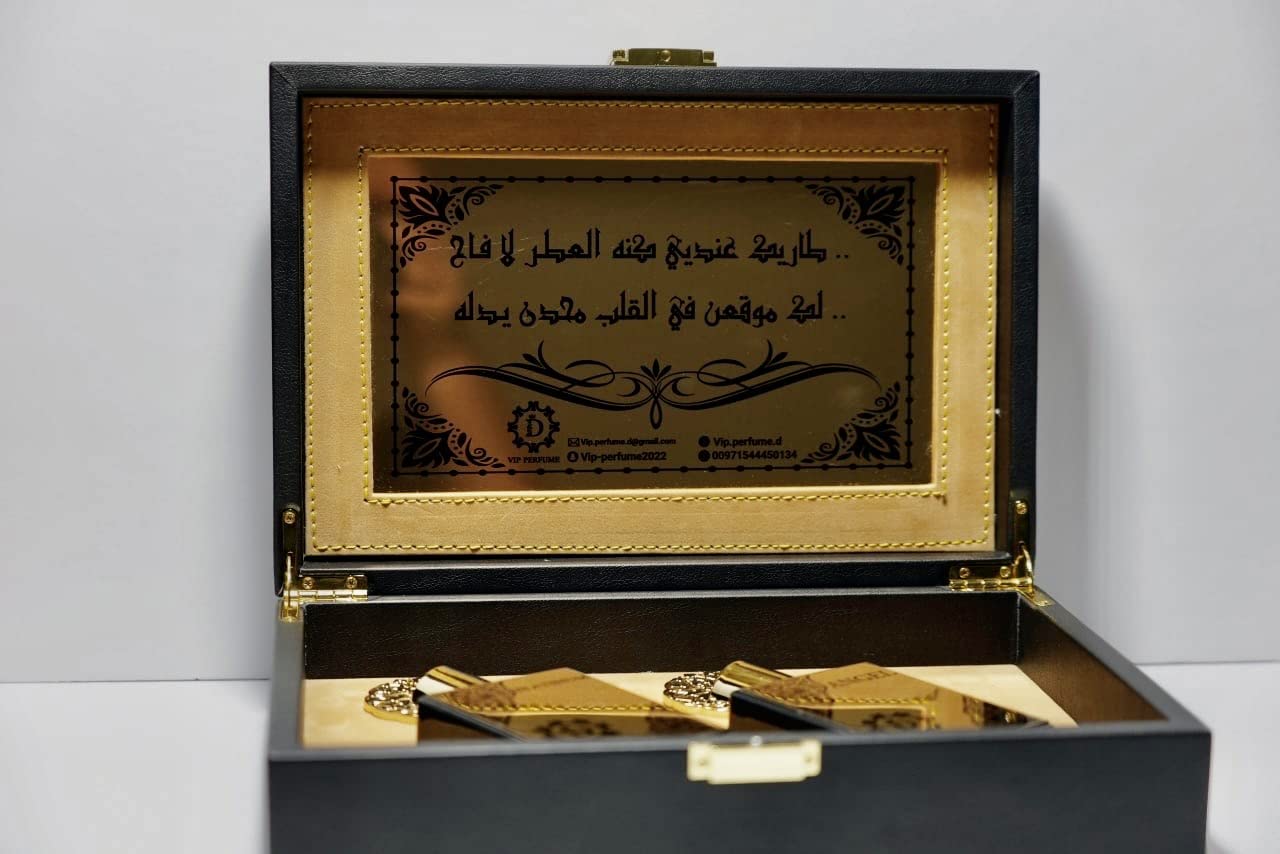 طاريك عنديي كنه العطر لا فاح ..
لك موقعن في القلب محدن يدله ..
VIP PERFUME
Vip.perfume.d@gmail.com
Vip-perfume2022
Vip.perfume.d
00971544450134
ANGEL